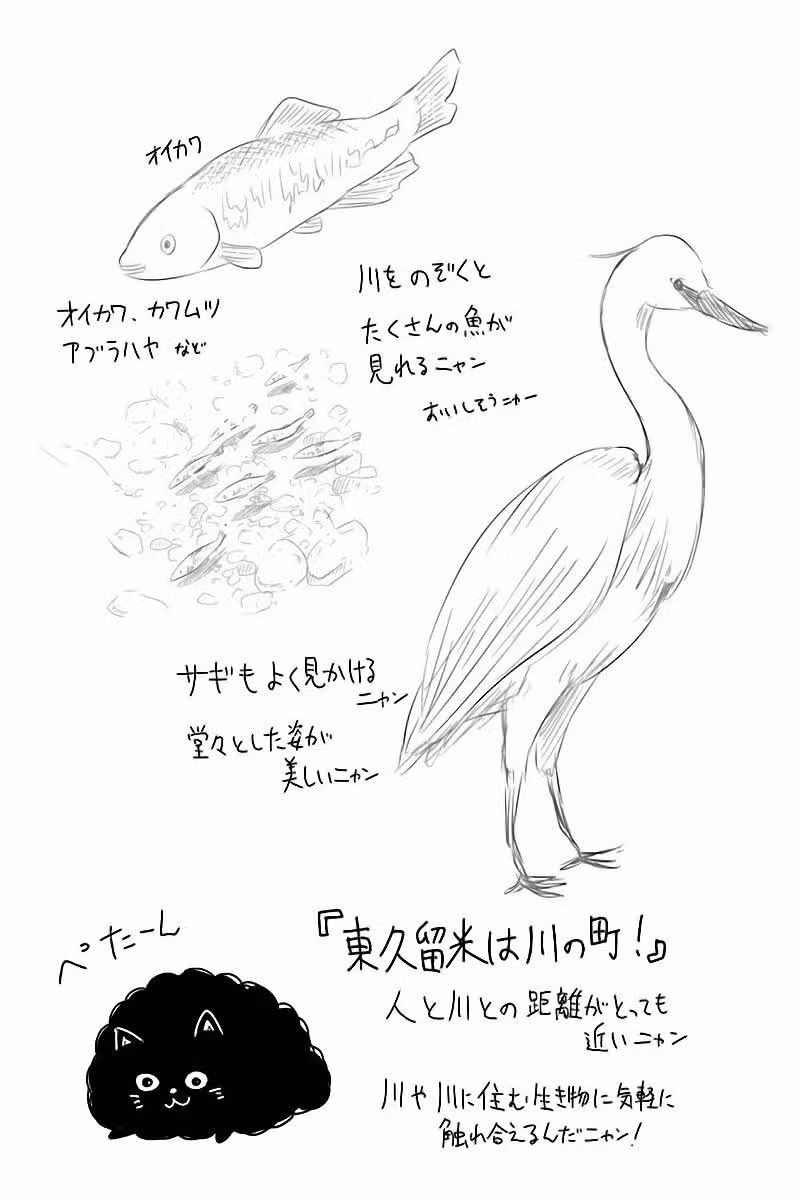 オイカワ
オイカワ、カワムツ
アブラハヤ など
川をのぞくと
たくさんの魚が
見れるニャン
おいしそうニャー
サギもよく見かける
ニャン
堂々とした姿が
美しいニャン
ぺたーん
『東久留米は川の町！』
人と川との距離がとっても
近いニャン
川や川に住む生き物に気軽に
触れ合えるんだニャン！